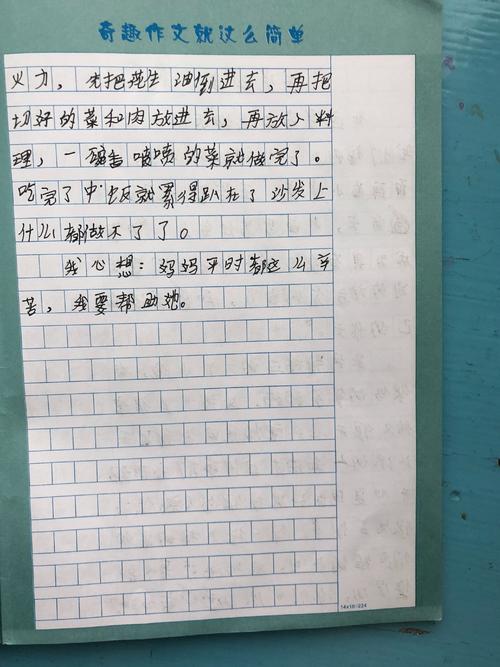 奇趣作文就这么简单
火力，先把花生油倒进去，再把
切好的菜和肉放进去，再放入料
理，一碗香喷喷的菜就做完了。
吃完了中饭就累得趴在了沙发上
什么都做不了了。
我心想：妈妈平时都这么辛
苦，我要帮助她。
14×16=224